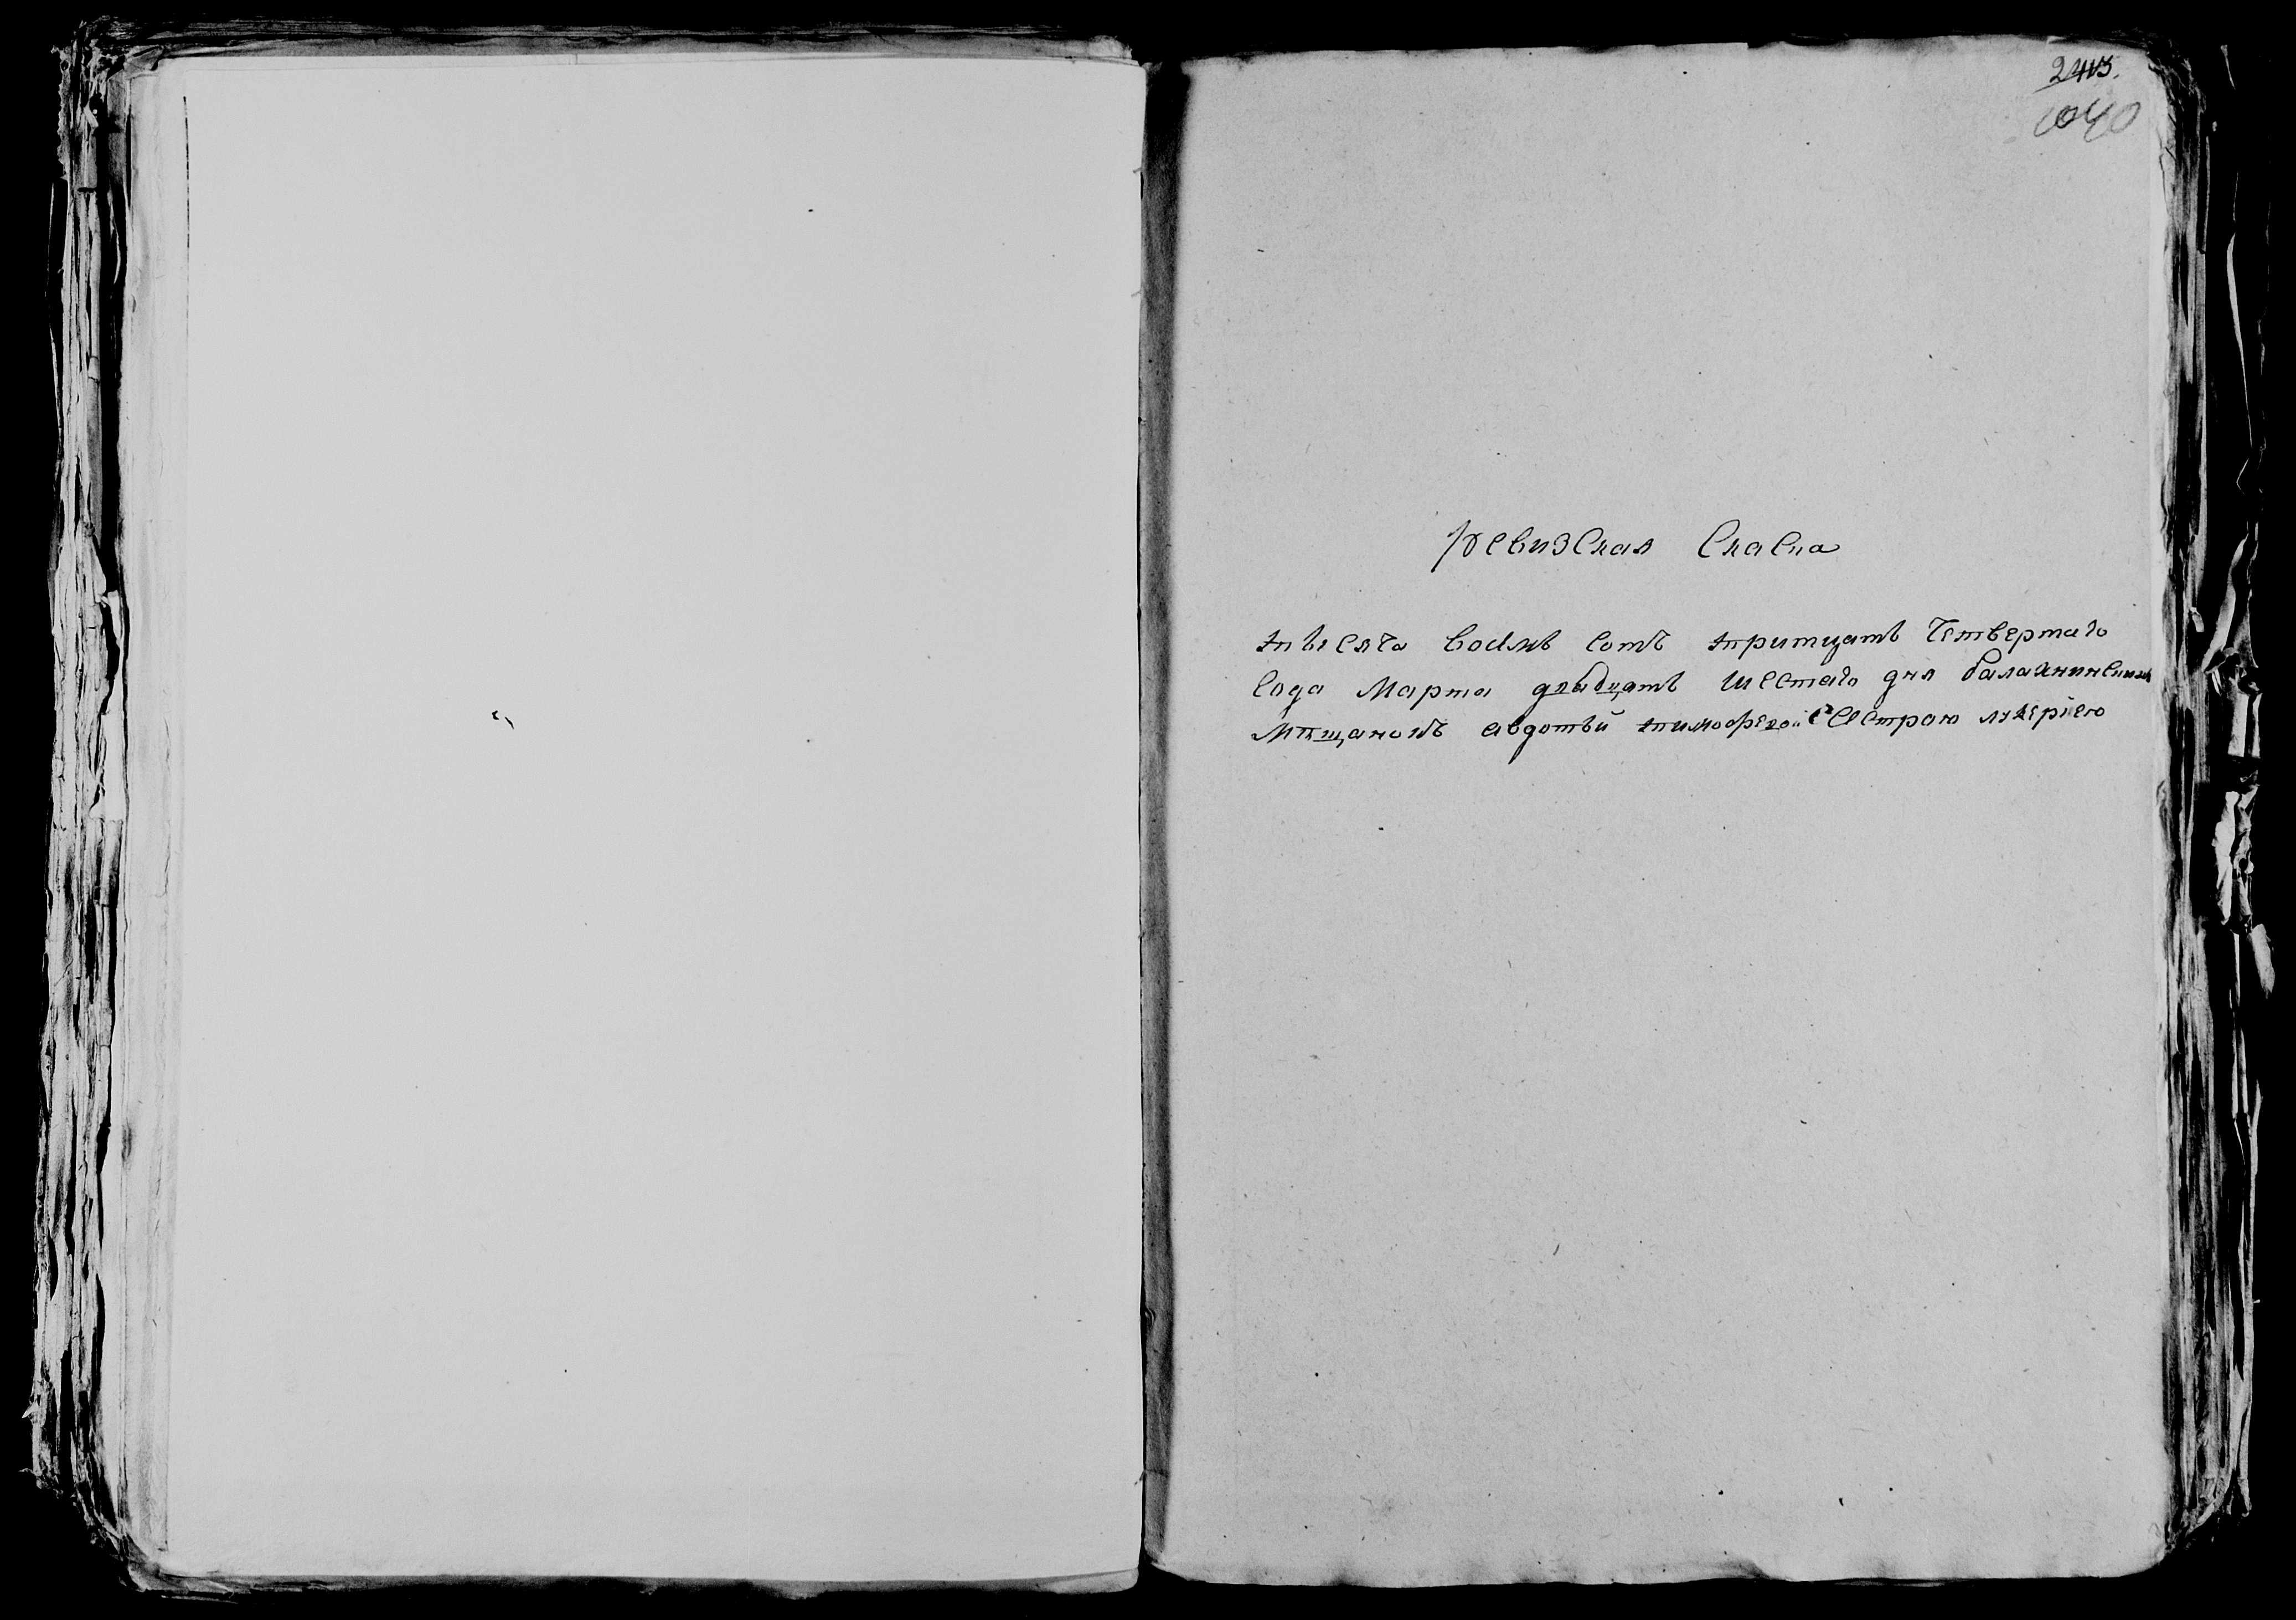 1040
ревизская Скаска
тысяча восмь сотъ тритцать Четвертаго
года Марта двадцать шестаго дня балахнинских
мѣщанокъ авдотьи тимофевой С сестрою лукерiею